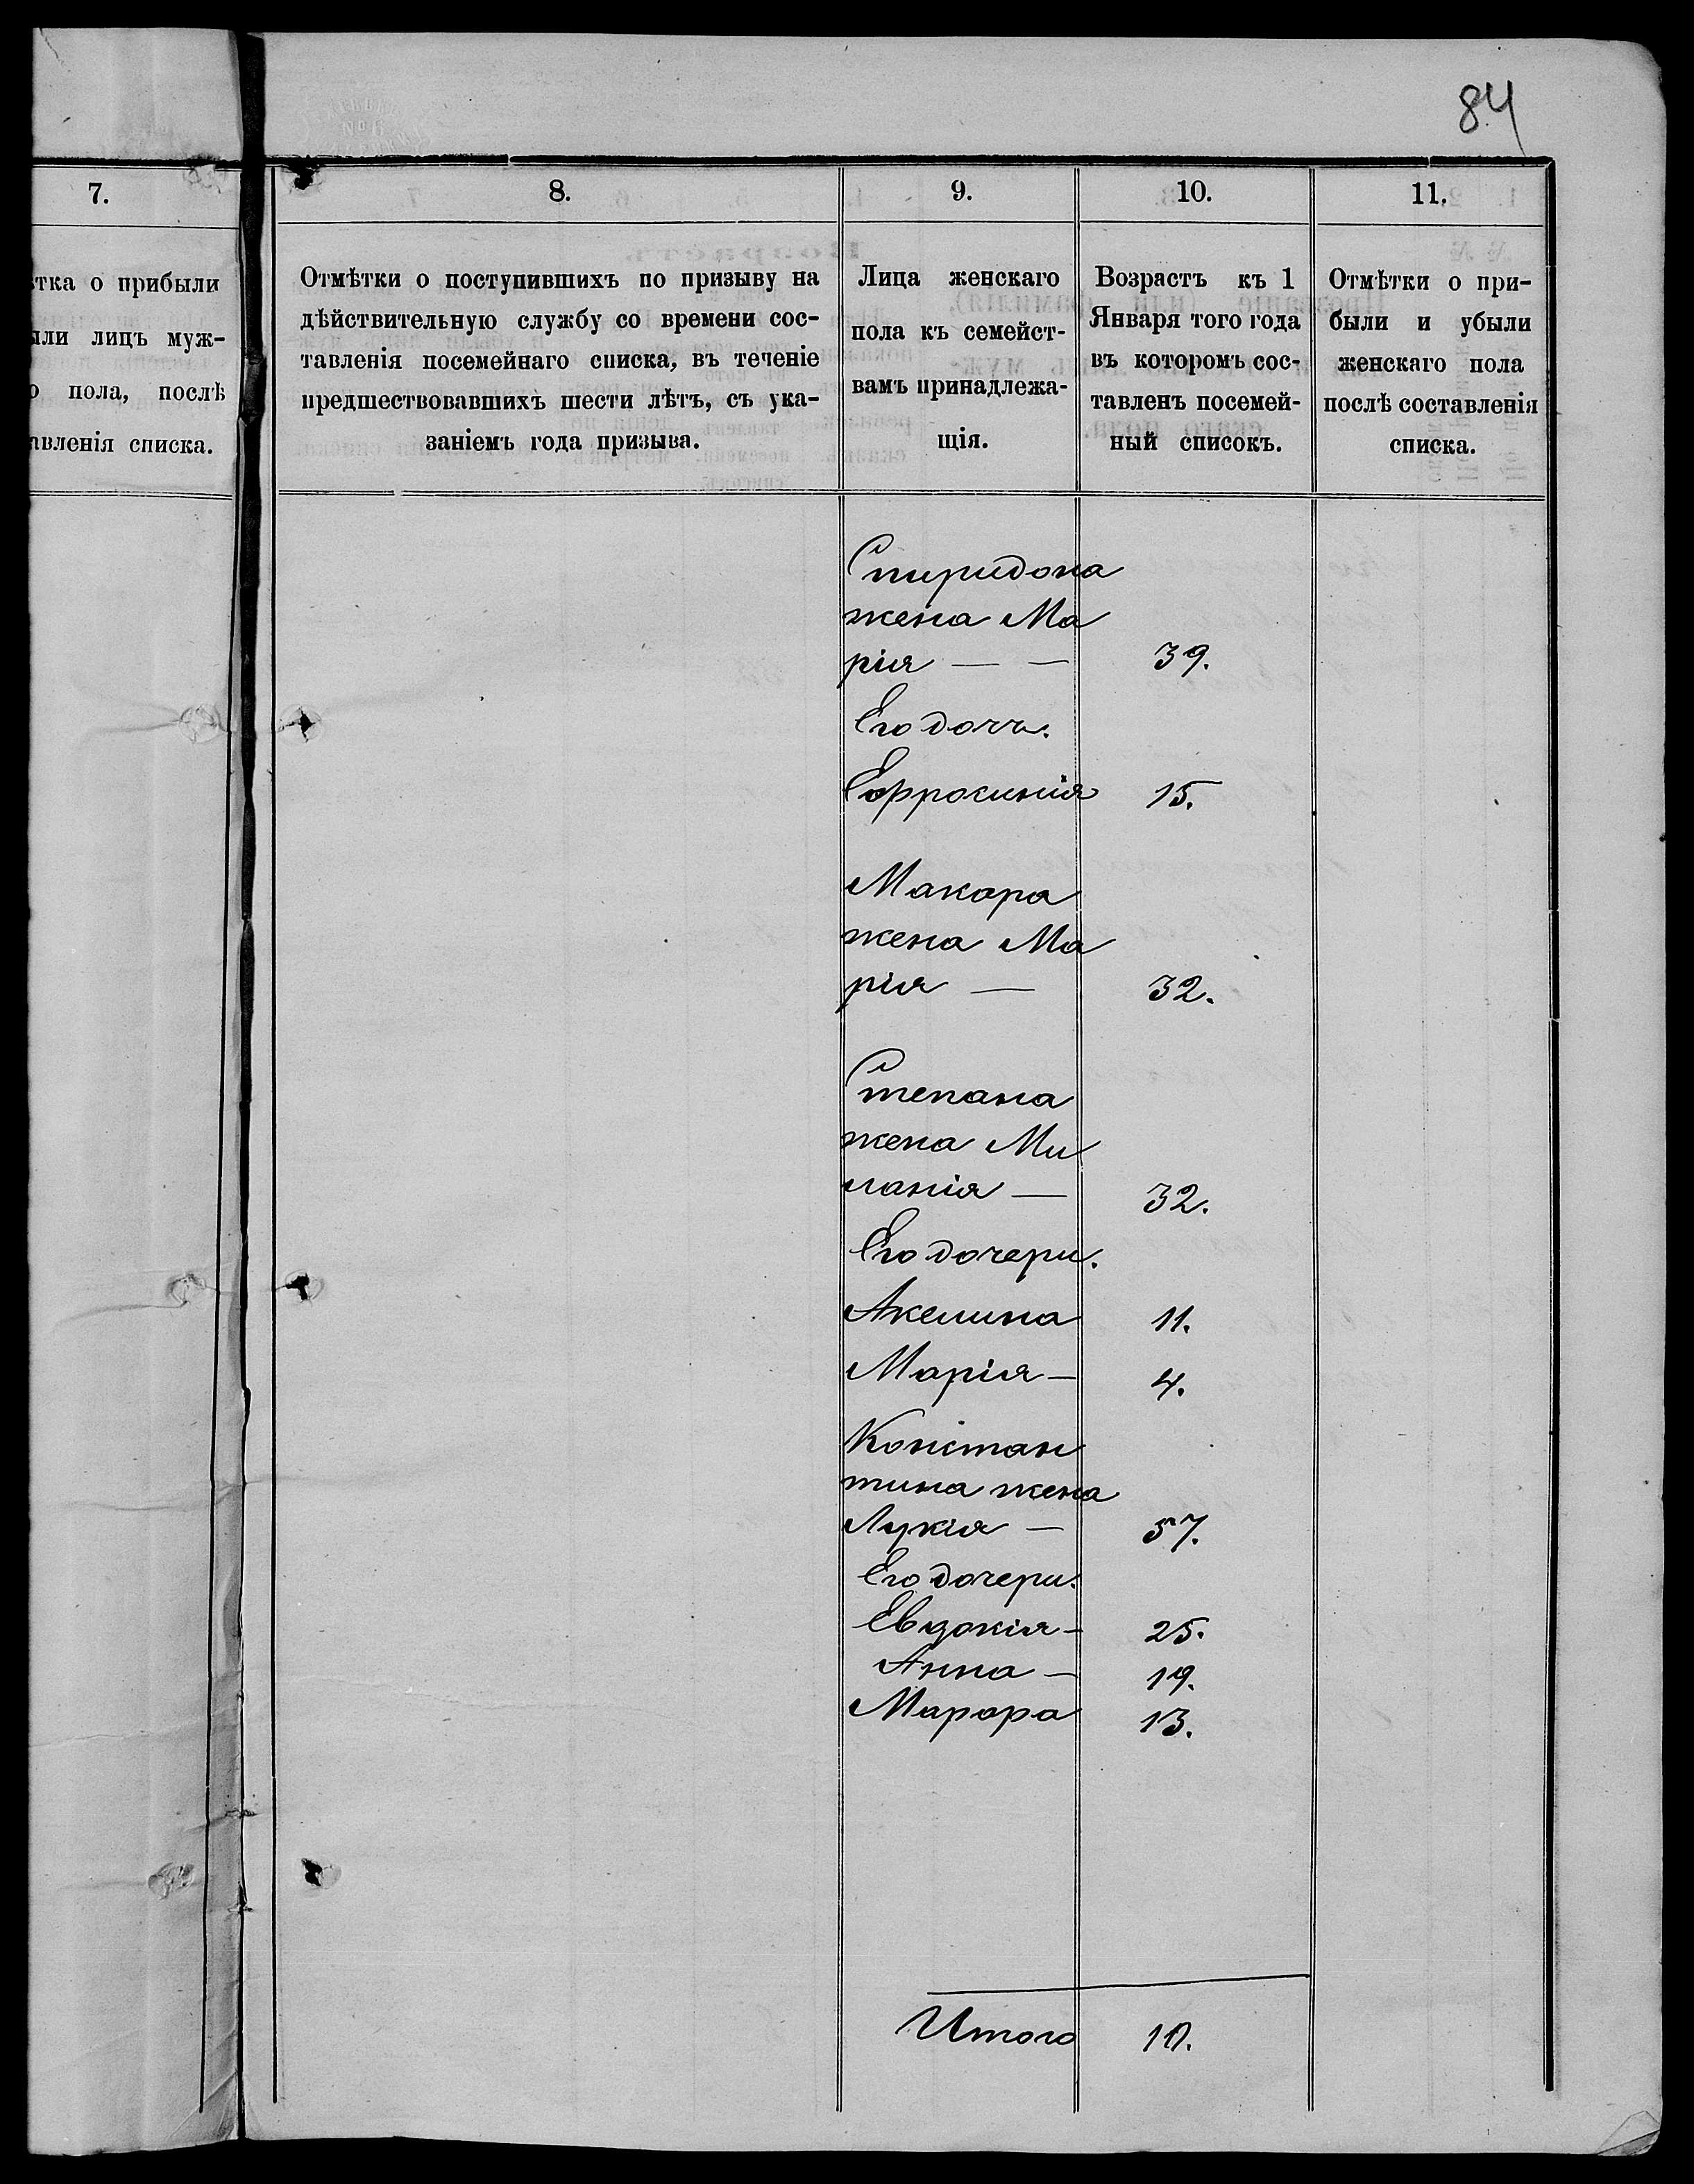 84
7.
8.
9.
10.
11.
тка о прибыли
или лицъ муж-
о пола, послѣ
авленія списка.
Отмѣтки о поступившихъ по призыву на
дѣйствительную службу со времени сос-
тавленія посемейнаго списка, въ теченіе
предшествовавшихъ шести лѣтъ, съ ука-
заніемъ года призыва.
Лица женскаго
пола къ семейст-
вамъ принадлежа-
щія.
Возрастъ къ 1
Января того года
въ которомъ сос-
тавленъ посемей-
ный списокъ.
Отмѣтки о при-
были и убыли
женскаго пола
послѣ составленія
списка.
Спиридона
жена Ма
рія — — 39.
Его дочь.
Ефросинія 15.
Макара
жена Ма
рія — 32.
Степана
жена Ми
ланія — 32.
Его дочери.
Акелина 11.
Марія — 4.
Констан
тина жена
Лукія — 57.
Его дочери.
Евдокія - 25.
Анна - 19.
Марфа 13.
Итого 10.